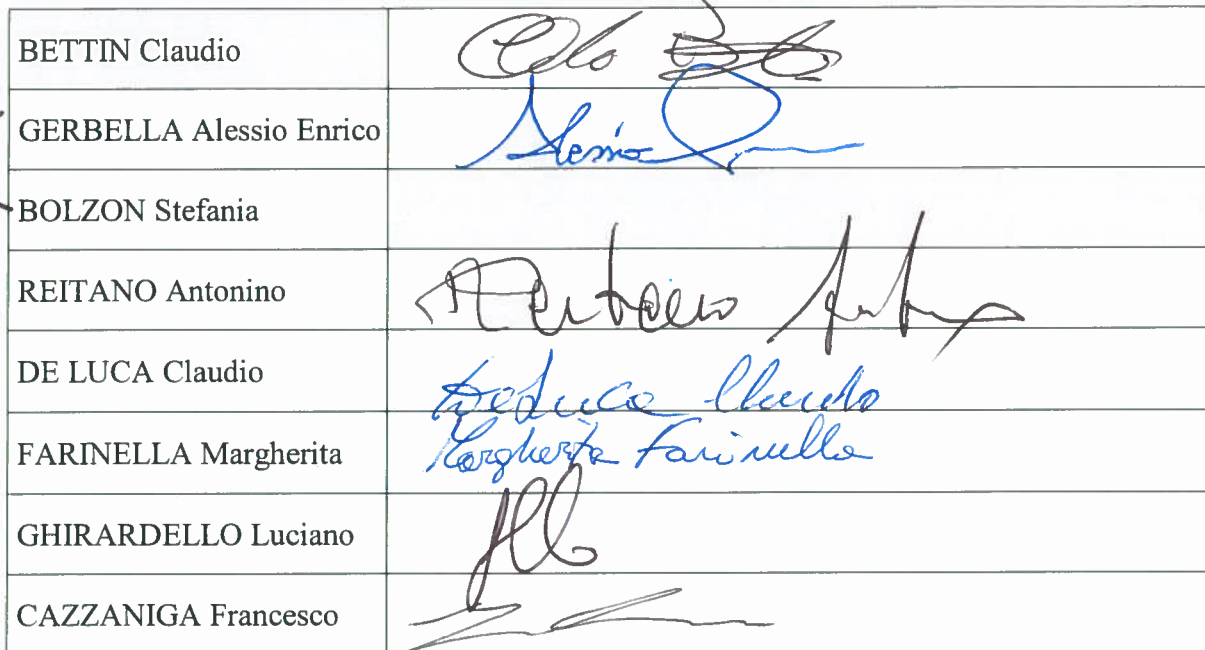 BETTIN Claudio
GERBELLA Alessio Enrico
Alessio
BOLZON Stefania
REITANO Antonino
DE LUCA Claudio
De Luca Claudio
FARINELLA Margherita
Margherita Farinella
GHIRARDELLO Luciano
CAZZANIGA Francesco